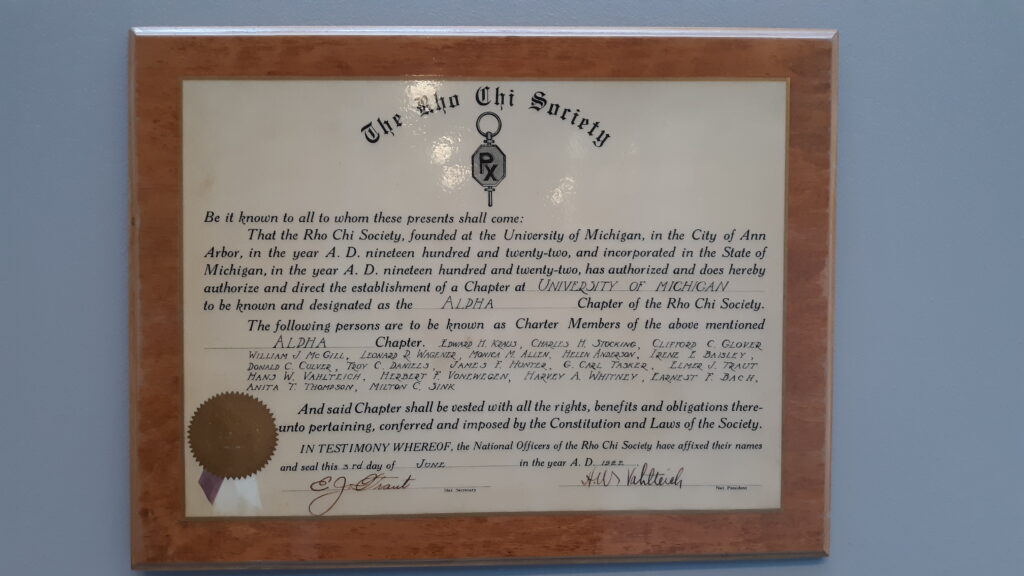 The Rho Chi Society
PX
Be it known to all to whom these presents shall come:
That the Rho Chi Society, founded at the University of Michigan, in the City of Ann
Arbor, in the year A. D. nineteen hundred and twenty-two, and incorporated in the State of
Michigan, in the year A. D. nineteen hundred and twenty-two, has authorized and does hereby
authorize and direct the establishment of a Chapter at UNIVERSITY OF MICHIGAN
to be known and designated as the ALPHA Chapter of the Rho Chi Society.
The following persons are to be known as Charter Members of the above mentioned
ALPHA Chapter. EDWARD H. KRAUS, CHARLES H. STOCKING, CLIFFORD C. GLOVER
WILLIAM J. MCGILL, LEONARD R. WAGENER, MONICA M. ALLEN, HELEN ANDERSON, IRENE E. BAISLEY,
DONALD C. CULVER, TROY C. DANIELS, JAMES F. HUNTER, G. CARL TASKER, ELMER J. TRAUT
HANS W. VAHLTEICH, HERBERT F. VONEWEGEN, HARVEY A. WHITNEY, EARNEST F. BACH,
ANITA T. THOMPSON, MILTON C. SINK
And said Chapter shall be vested with all the rights, benefits and obligations there-
unto pertaining, conferred and imposed by the Constitution and Laws of the Society.
IN TESTIMONY WHEREOF, the National Officers of the Rho Chi Society have affixed their names
and seal this 3rd day of JUNE in the year A. D. 1922
E J Traut HW Vahlteich
Nat Secretary Nat President